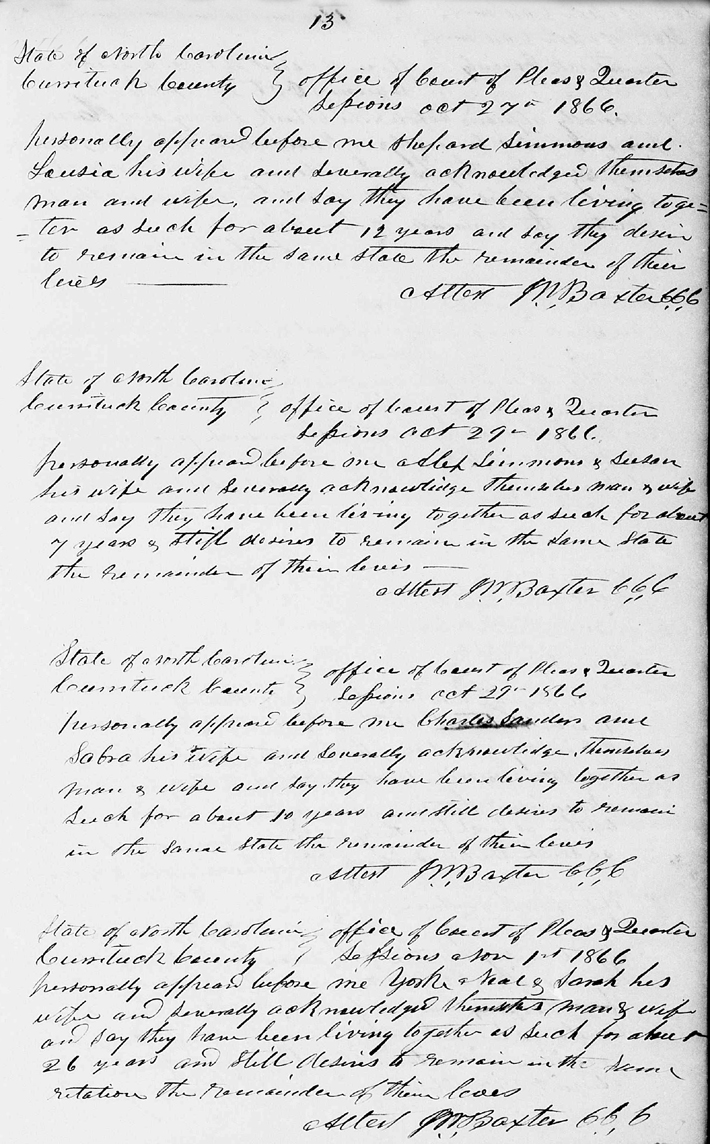 13
State of North Carolina
Currituck County } office of Court of Pleas & Quarter
Sessions oct 27th 1866.
personally appeared before me Shepard Simmons and
Lousia his wife and severally acknowledged themselves
man and wife, and say they have been living toge=
=ter as such for about 12 years and say they desire
to remain in the same state the remainder of their
lives —— Attest J.W. Baxter C.C.C
State of North Carolina
Currituck County } office of Court of Pleas & Quarter
Sessions oct 29th 1866.
personally appeard before me Alex Simmons & Susan
his wife and severally acknowlidge themselves man & wife
and say they have been living together as such for about
7 years & still desires to remain in the same state
the remainder of their lives —
Attest J.W. Baxter C.C.C
State of North Carolina } office of Court of Pleas & Quarter
Currituck County } Sessions oct 29th 1866
personally appeard before me Charles Sanders and
Sabra his wife and severally acknowlidge themselves
man & wife and say they have been living together as
such for about 10 years and still desires to remain
in the same state the remainder of their lives
Attest J.W. Baxter C.C.C
State of North Carolina } office of Court of Pleas & Quarter
Currituck County } Sessions Nov 1st 1866
personally appeard before me York Neal & Sarah his
wife and severally acknowledged themselves man & wife
and say they have been living together as such for about
26 years and still desires to remain in the same
relation the remainder of their lives
Attest J.W. Baxter C.C.C